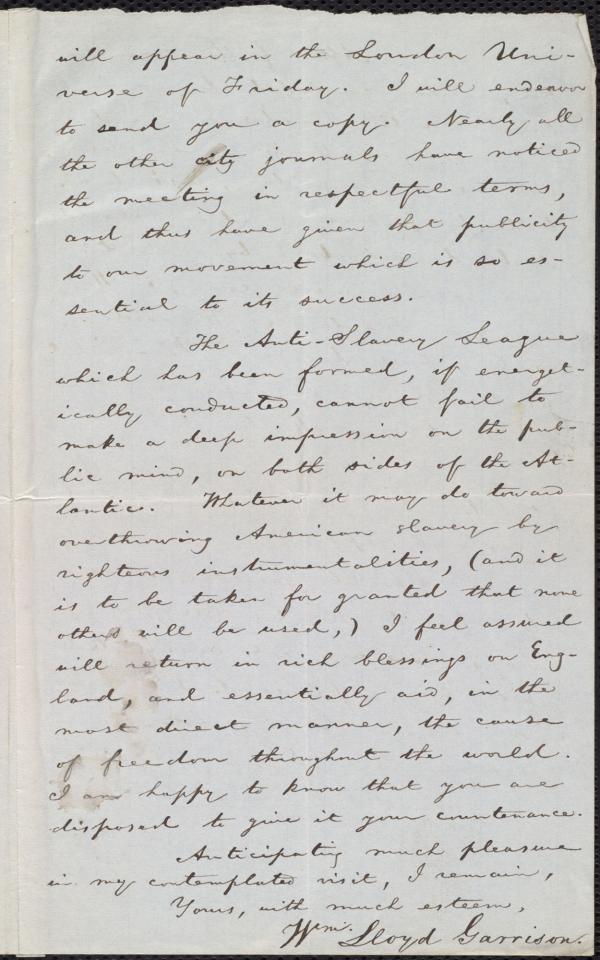 will appear in the London Uni-
verse of Friday. I will endeavor
to send you a copy. Nearly all
the other city journals have noticed
the meeting in respectful terms,
and thus have given that publicity
to our movement which is so es-
sential to its success.
The Anti-Slavery League
which has been formed, if energet-
ically conducted, cannot fail to
make a deep impression on the pub-
lic mind, on both sides of the At-
lantic. Whatever it may do toward
overthrowing American slavery by
righteous instrumentalities, (and it
is to be taken for granted that none
others will be used,) I feel assured
will return in rich blessings on Eng-
land, and essentially aid, in the
most direct manner, the cause
of freedom throughout the world.
I am happy to know that you are
disposed to give it your countenance.
Anticipating much pleasure
in my contemplated visit, I remain,
Yours, with much esteem,
Wm. Lloyd Garrison.